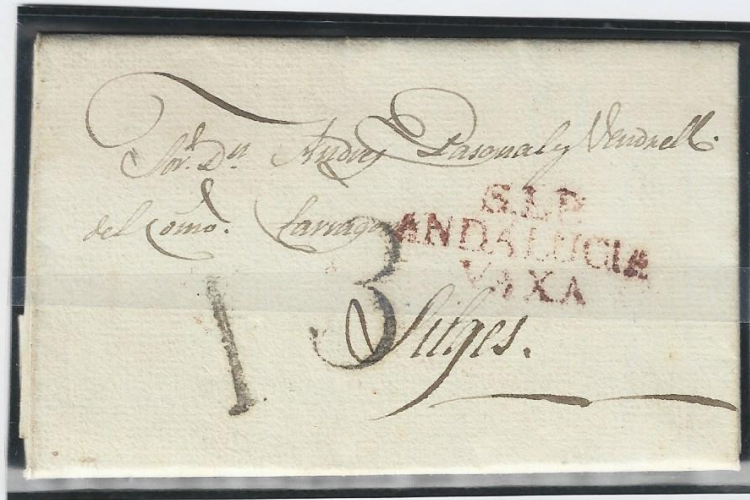 Sor. Dn. Andres Pasqual y Vendrell.
del ComO. Tarragona
S.L.P.
ANDALUCIA
VAXA
13
Sitges.